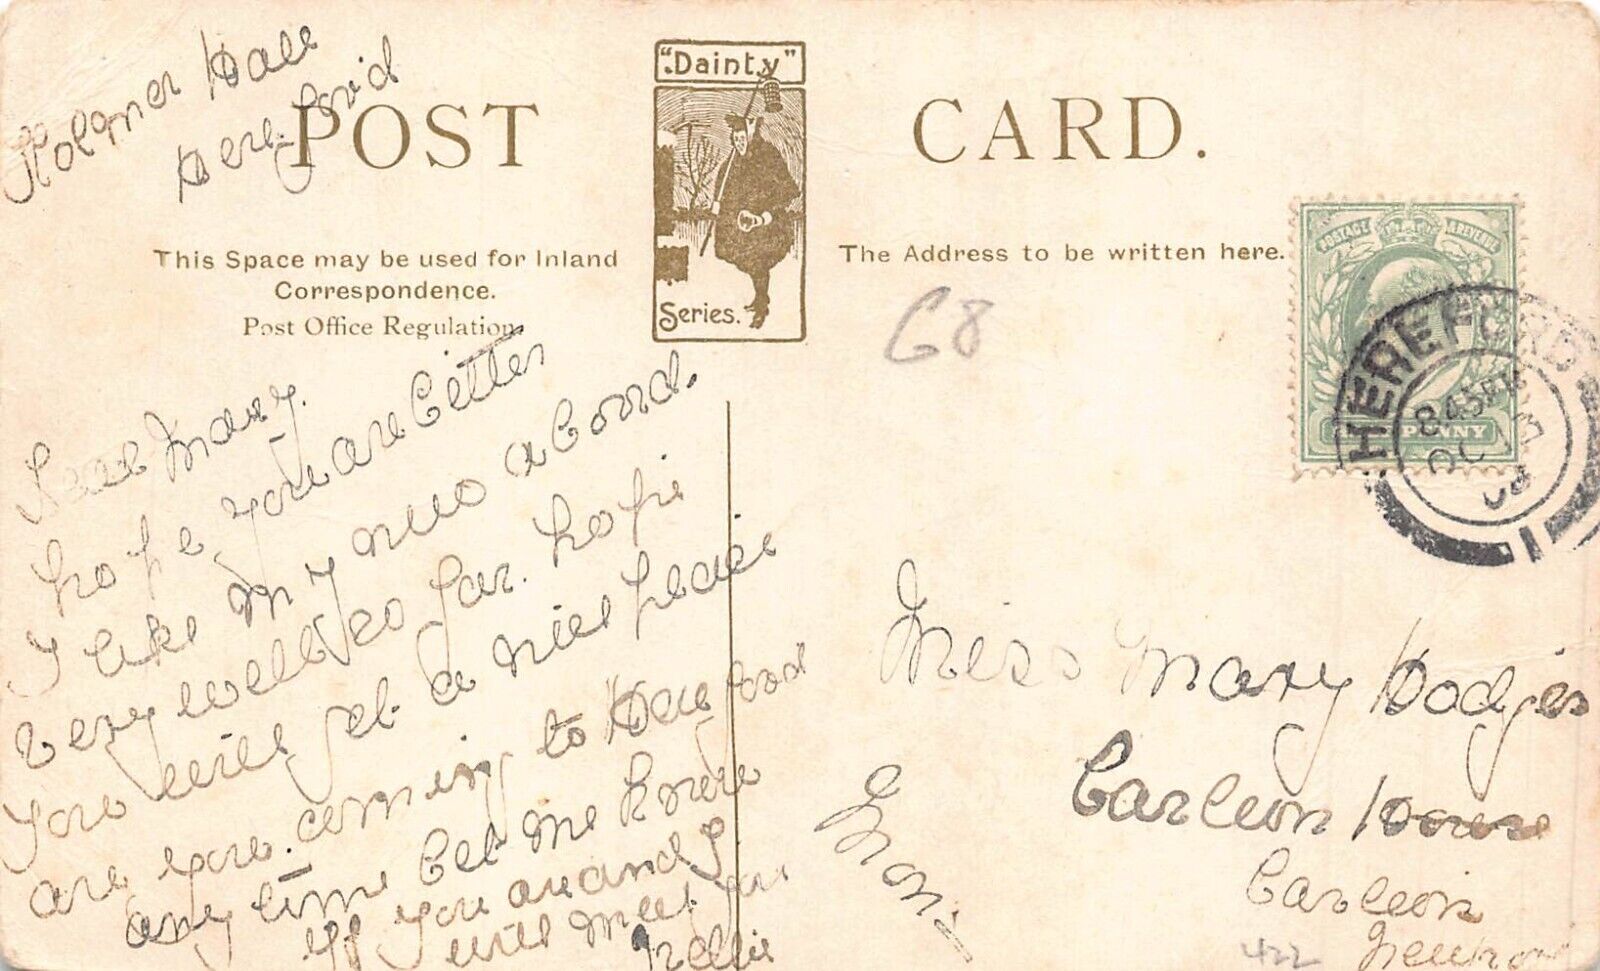 Holmer Hall
Hereford
POST
CARD.
"Dainty"
Series.
This Space may be used for Inland
Correspondence.
Post Office Regulation
The Address to be written here.
G8
POSTAGE & REVENUE
PENNY
HEREFORD
845PM
OC 13
08
1
Dear Mary.
hope you are better
I like my new abord.
very well so far. hope
you will get a nice place
are you coming to Hereford
any time Let me know
if you are and I
will meet you
Nellie
Miss Mary Hodges
Carleon House
Carleon
Mon.
422